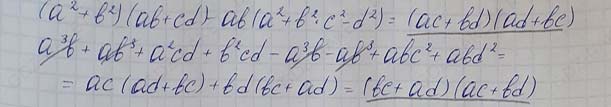 (a²+b²)(ab+cd)-ab(a²+b²-c²-d²)=(ac+bd)(ad+bc)
a³b+ab³+a²cd+b²cd-a³b-ab³+abc²+abd²=
=ac(ad+bc)+bd(bc+ad)=(bc+ad)(ac+bd)